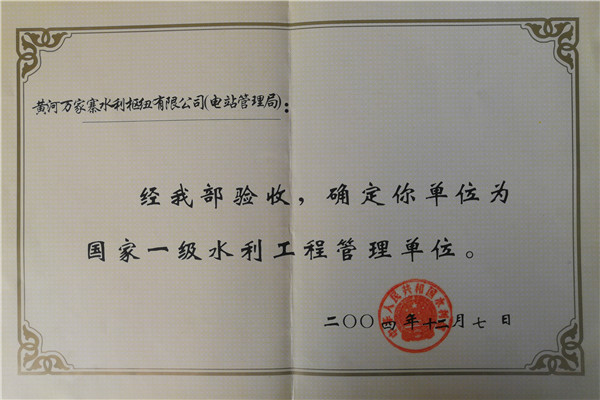 黄河万家寨水利枢纽有限公司(电站管理局):
经我部验收，确定你单位为
国家一级水利工程管理单位。
二〇〇四年十二月七日
中华人民共和国水利部